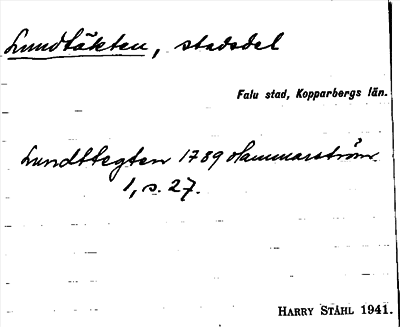 Lundtäkten, stadsdel
Falu stad, Kopparbergs län.
Lundttegten 1789 Hammarström
1, s. 27.
HARRY STÅHL 1941.